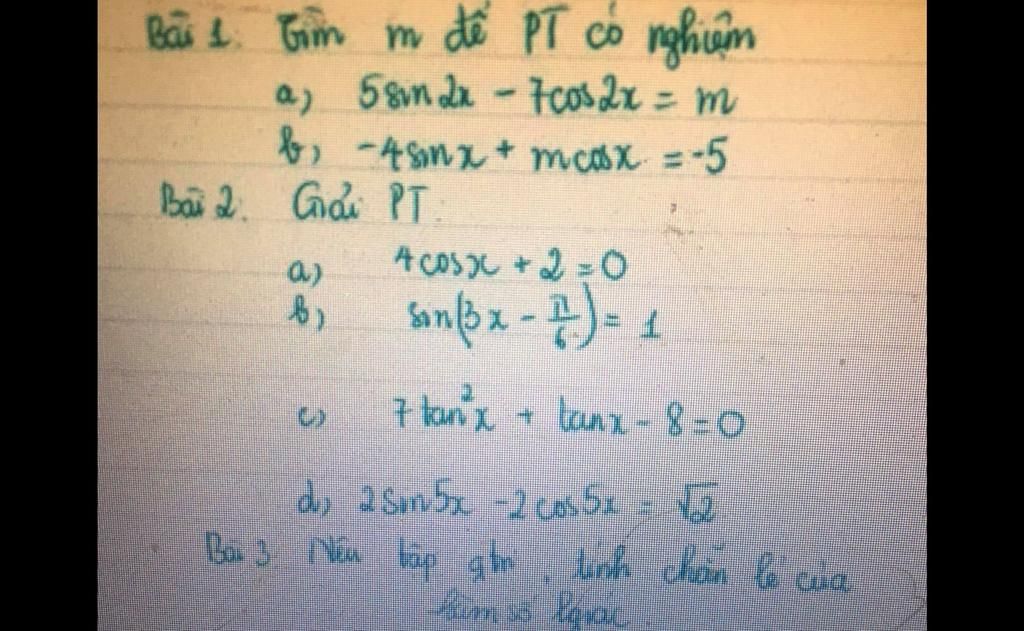 Bài 1. Tìm m để PT có nghiệm
a) 5sin2x - 7cos2x = m
b) -4sinx + mcosx = -5
Bài 2. Giải PT
a) 4cosx + 2 = 0
b) sin(3x - π/6) = 1
c) 7tan²x + tanx - 8 = 0
d) 2sin5x - 2cos5x = √2
Bài 3 Nêu tập gtrị, tính chẵn lẻ của
hàm số lgiác.